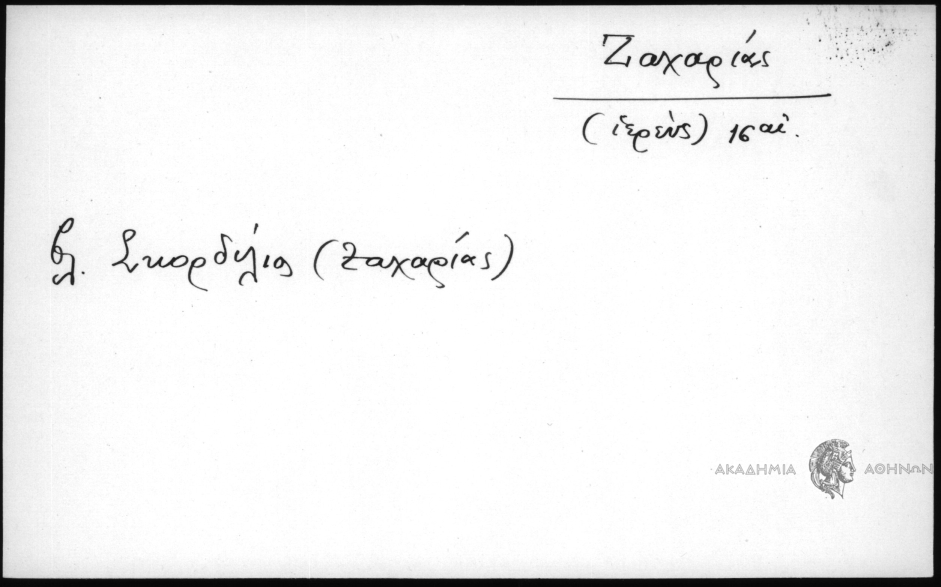 Ζαχαρίας
(ἱερεὺς) 16 αἰ.
βλ. Σκορδύλιος (Ζαχαρίας)
ΑΚΑΔΗΜΙΑ ΑΘΗΝΩΝ